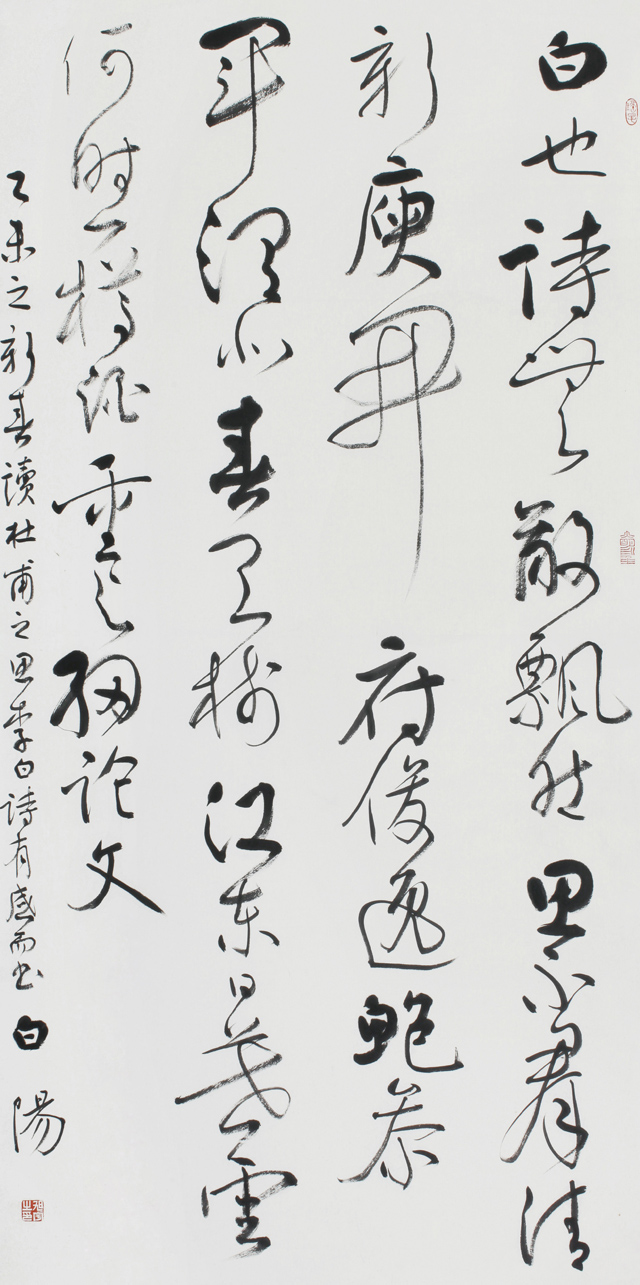 白也詩無敵飄然思不羣清
新庾開府俊逸鮑參
軍渭北春天樹江東日暮雲
何時一樽酒重與細論文
乙未之新春讀杜甫之思李白詩有感而书 白陽